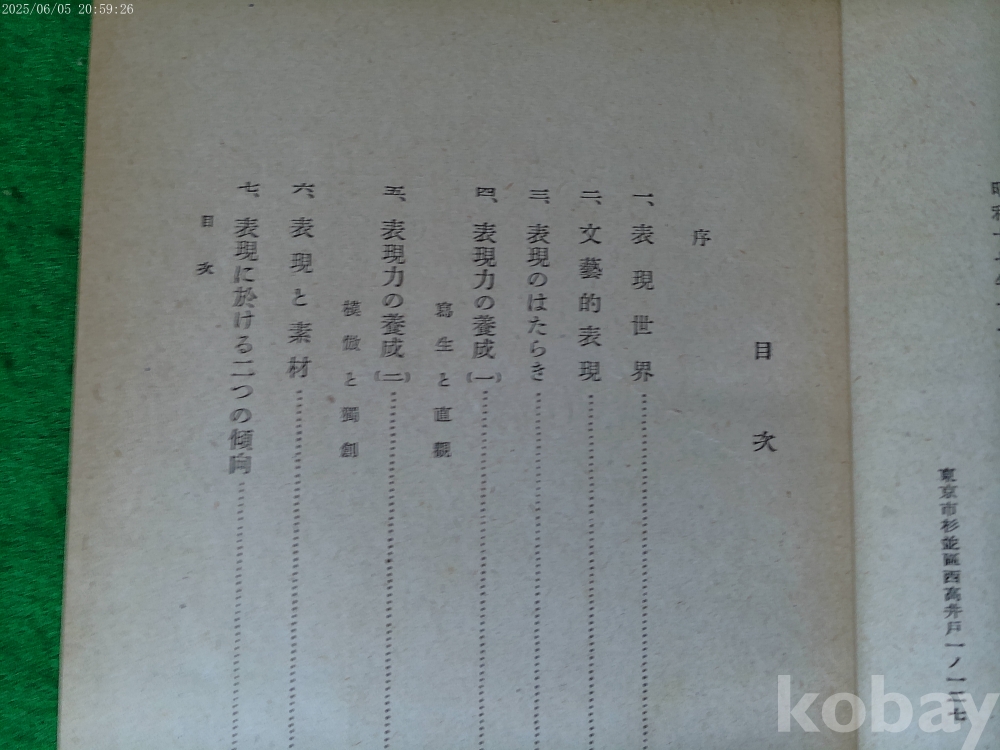 2025/06/05 20:59:26
東京市杉並區西高井戸一ノ一三七
目次
序
一、表現世界
二、文藝的表現
三、表現のはたらき
四、表現力の養成(一)
寫生と直觀
五、表現力の養成(二)
模倣と獨創
六、表現と素材
七、表現に於ける二つの傾向
目次
kobay